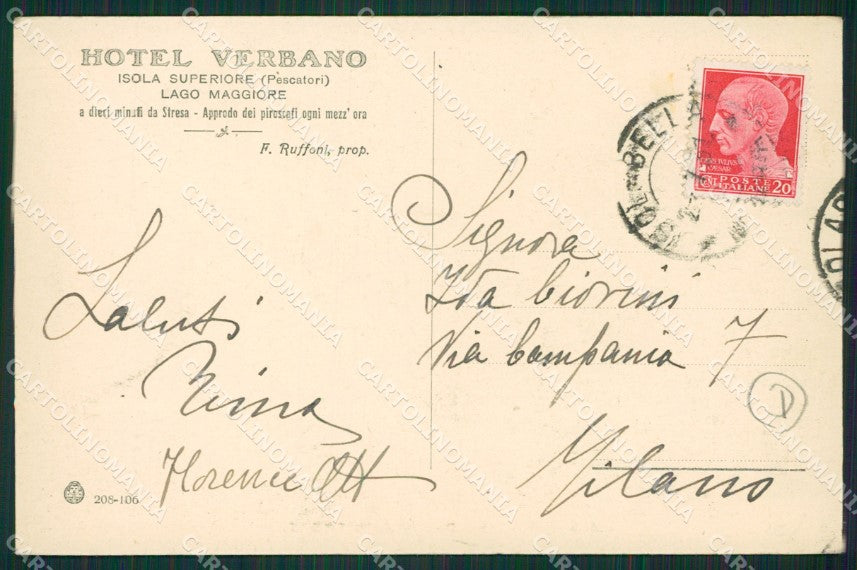 HOTEL VERBANO
ISOLA SUPERIORE (Pescatori)
LAGO MAGGIORE
a dieci minuti da Stresa - Approdo dei piroscafi ogni mezz' ora
F. Ruffoni, prop.
ISOLA BELLA
IVLIVS
CAESAR
POSTE
ITALIANE 20
Saluti
Nina
Florence Ott
208-106
Signora
Ida Ciorini
Via Campania 7
Milano
D
CARTOLINOMANIA